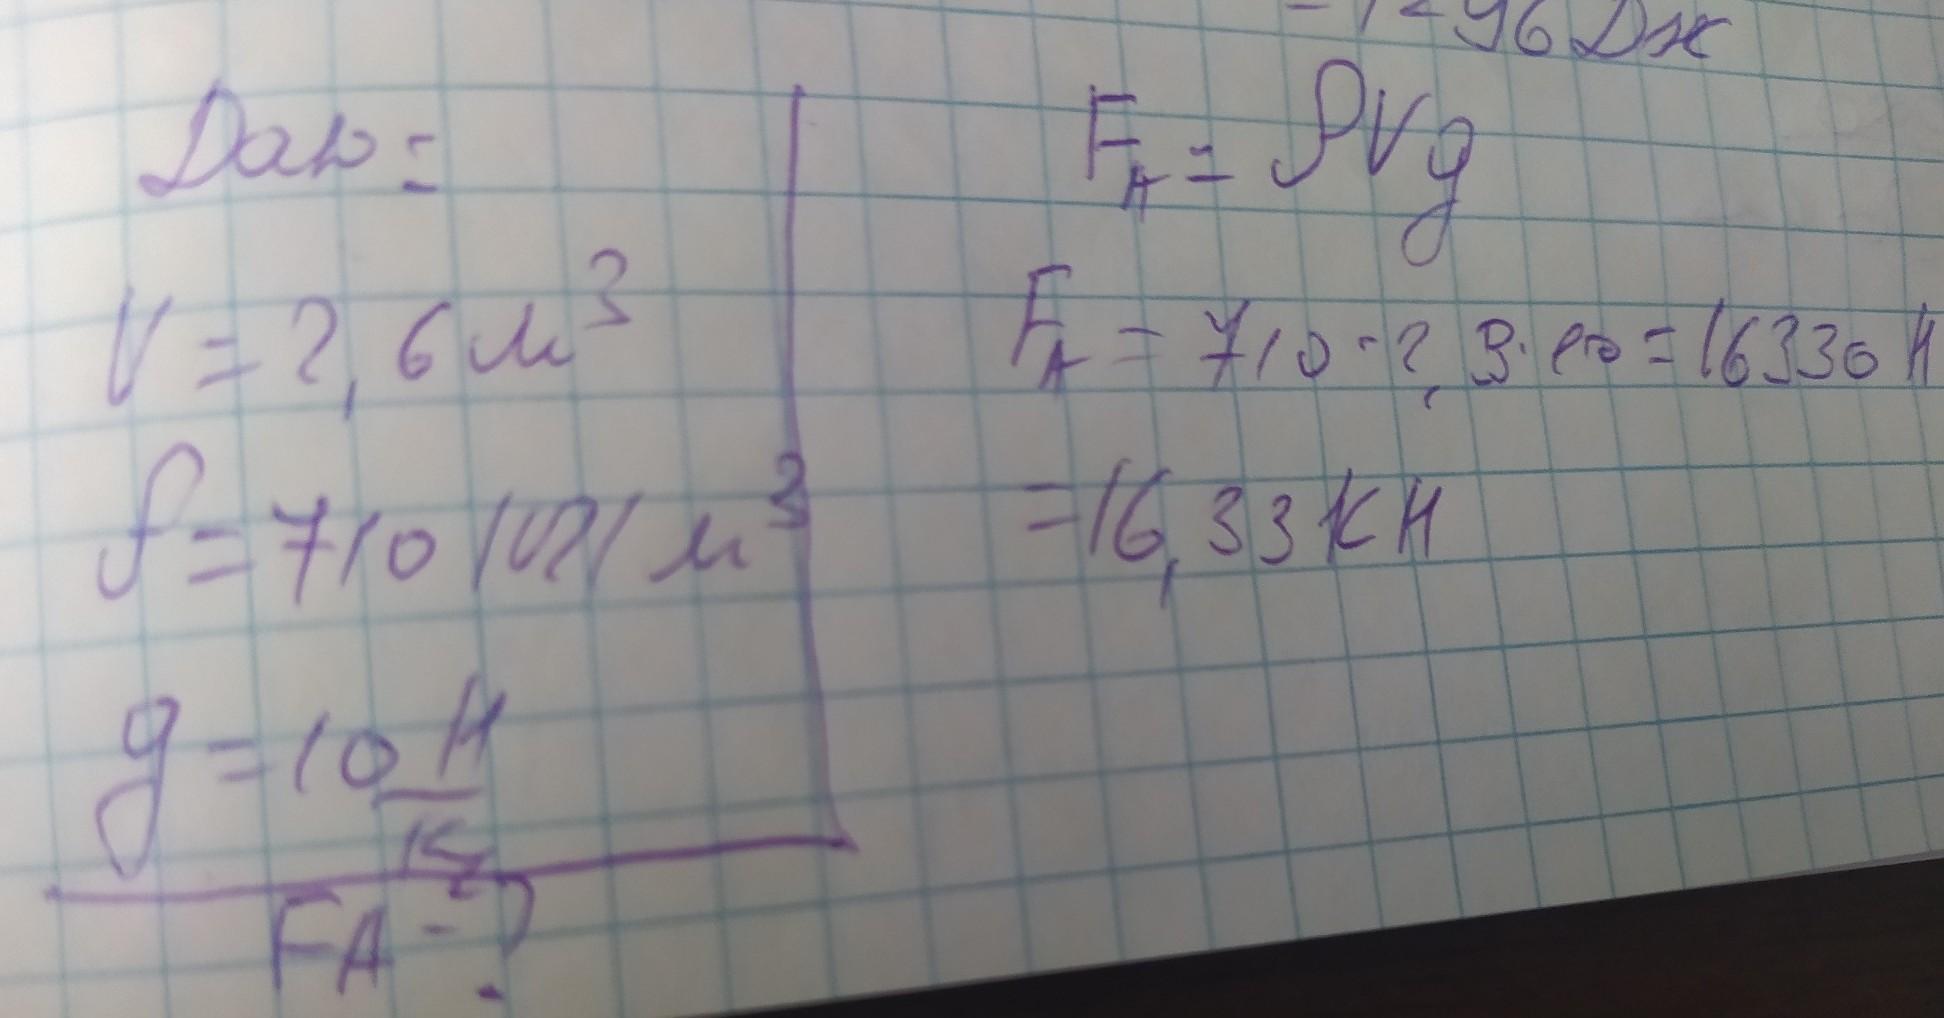 = 1296 Дж
Дано:
V = 2,6 м³
ρ = 710 кг/м³
g = 10 Н
кг
FA - ?
F_A = ρVg
F_A = 710 · 2,3 · 10 = 16330 Н
= 16,33 кН